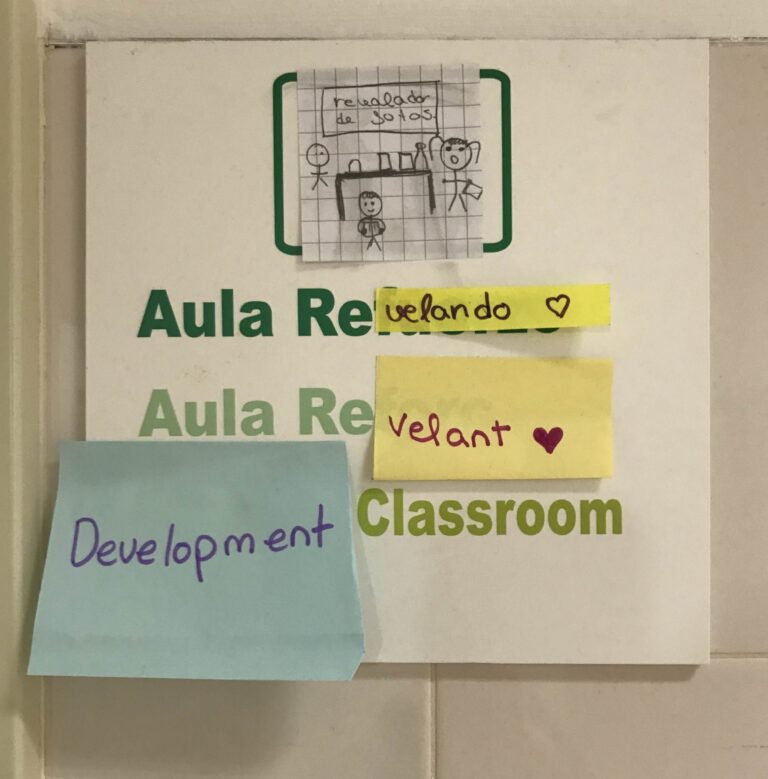 revelador
de gotos
Aula Revelando ♡
Aula Revelant ♥
Development Classroom